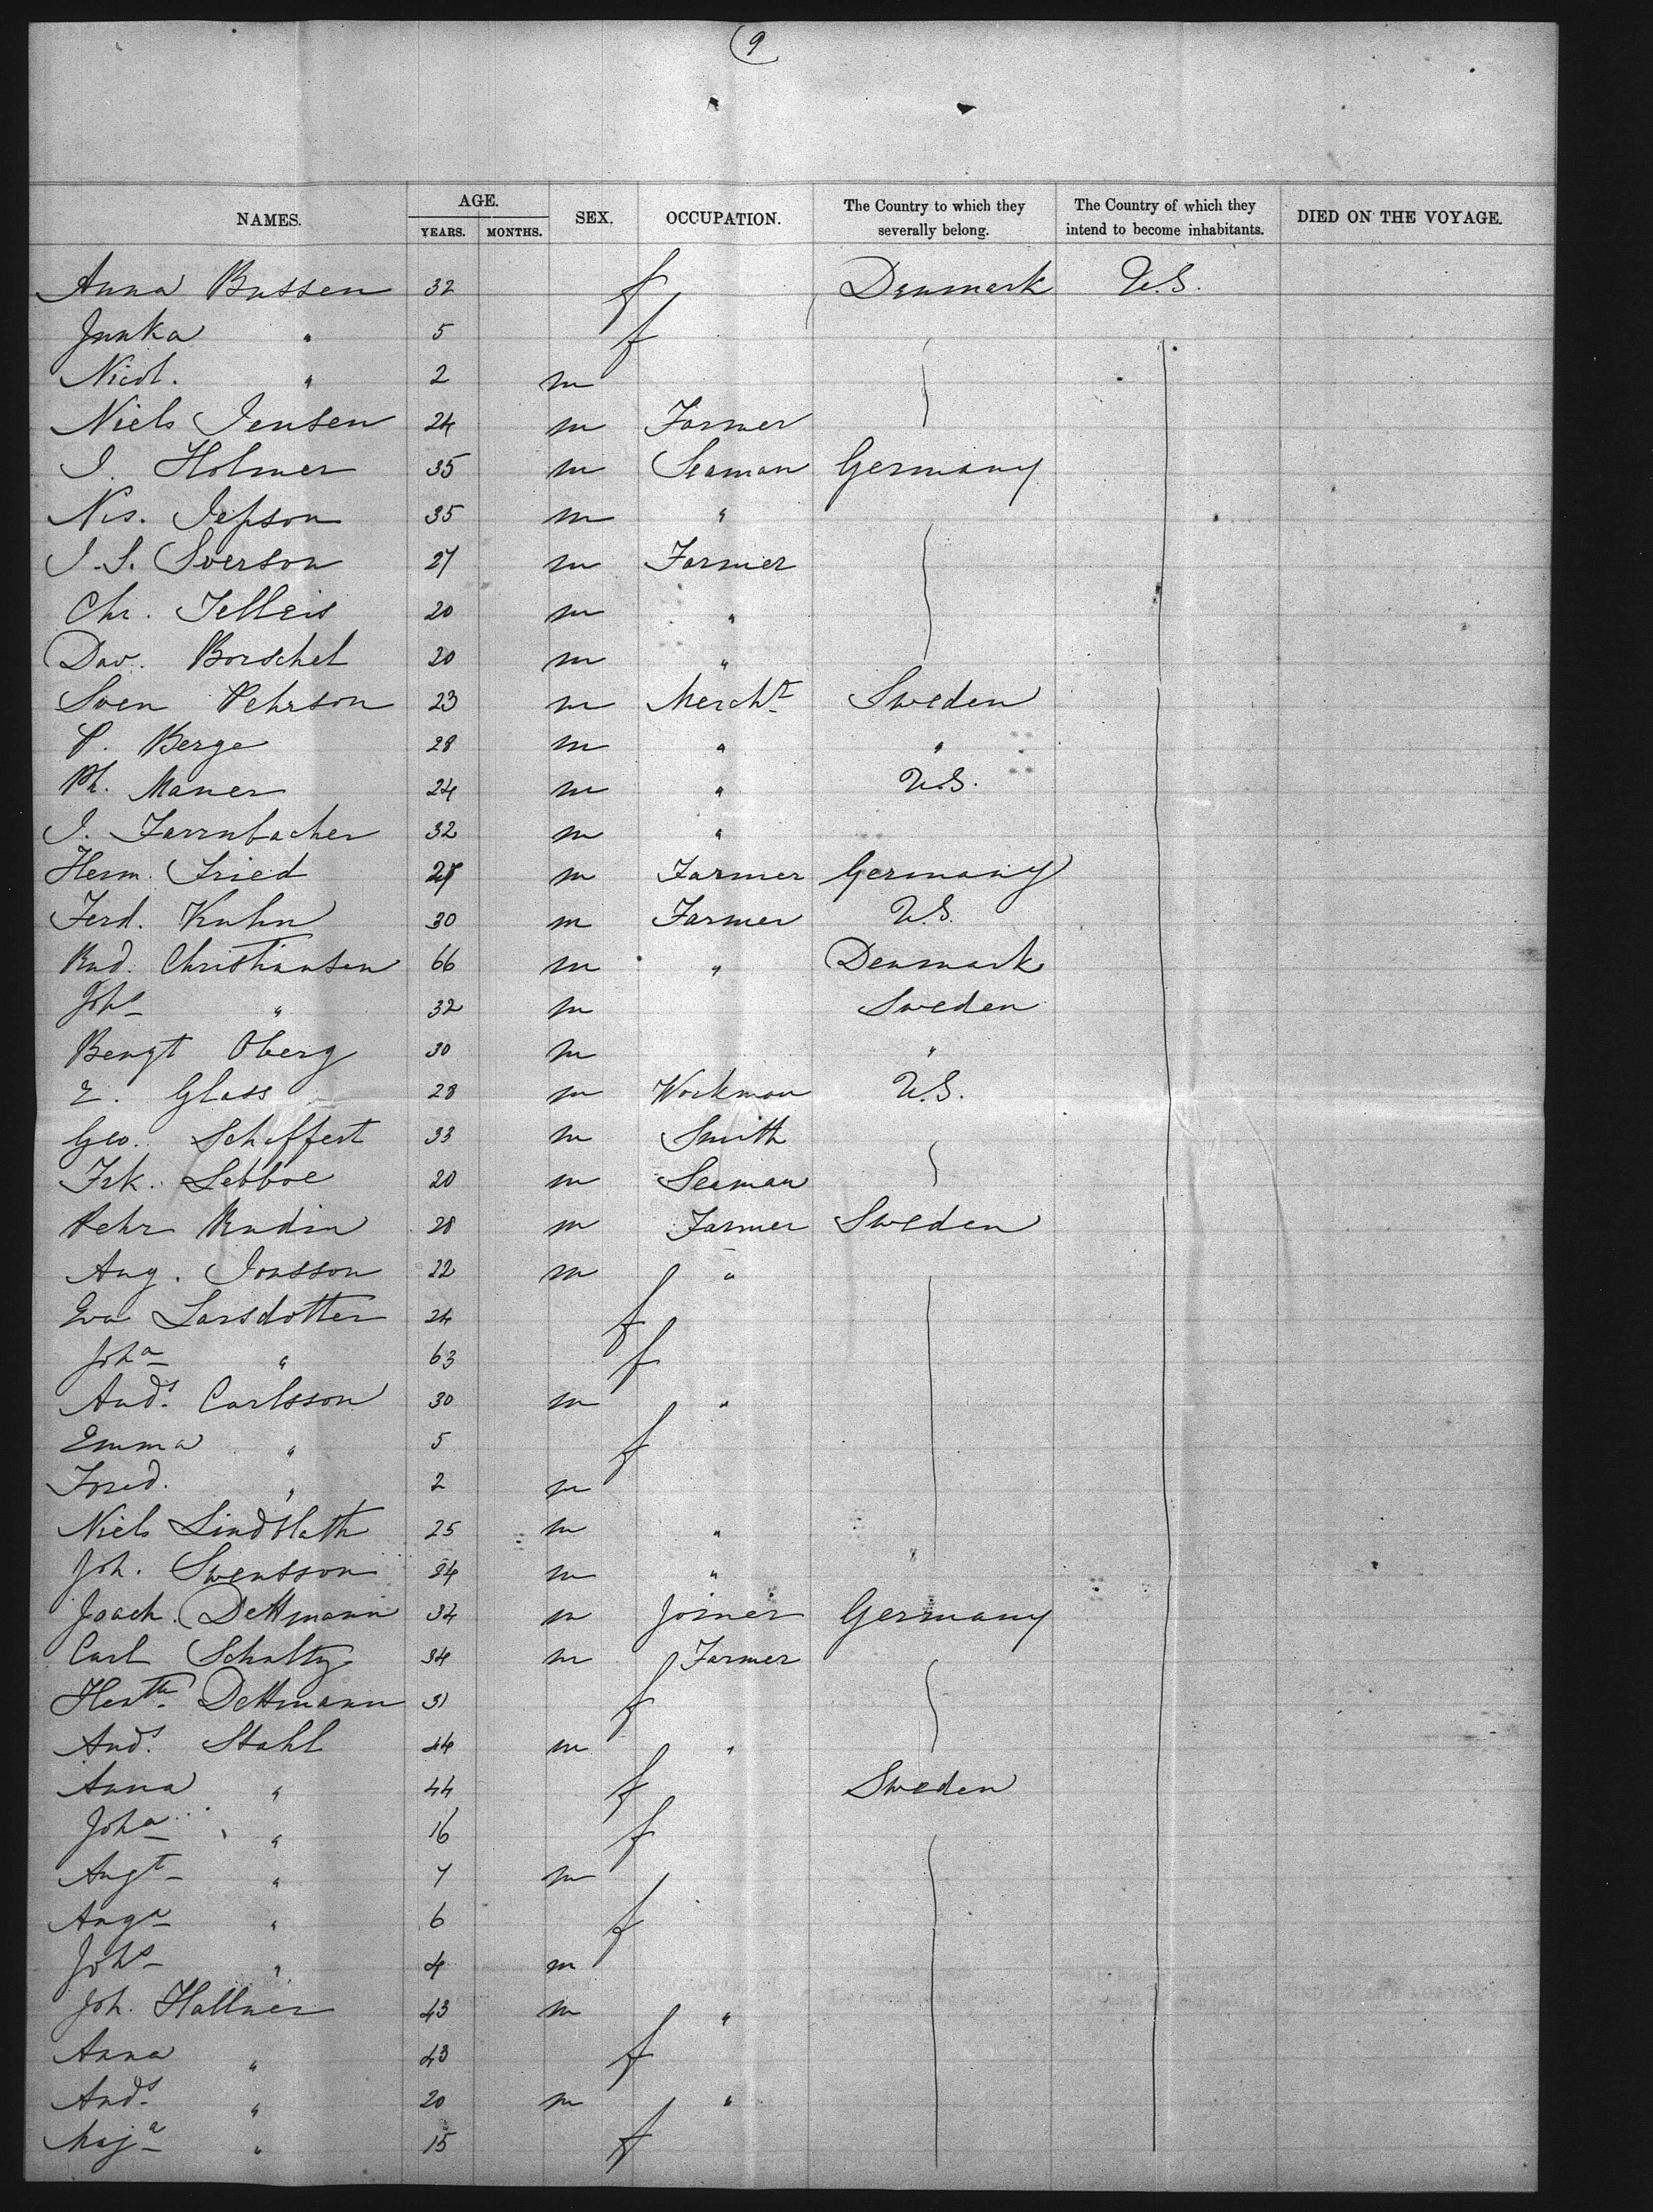 9
NAMES. AGE. YEARS. MONTHS. SEX. OCCUPATION. The Country to which they severally belong. The Country of which they intend to become inhabitants. DIED ON THE VOYAGE.
Anna Bussen 32 f Denmark U.S.
Junka " 5 f
Nicol. " 2 m
Niels Jensen 24 m Farmer
J. Holmer 35 m Seaman Germany
Nis. Jepson 35 m "
J. S. Sverson 27 m Farmer
Chr. Telleis 20 m "
Dav. Borschel 20 m "
Sven Pehrson 23 m Mercht Sweden
P. Berge 28 m " "
Ph. Maner 24 m " U.S.
J. Farrnbacher 32 m "
Herm. Fried 27 m Farmer Germany
Ferd. Kuhn 30 m Farmer U.S.
Knd. Christiansen 66 m " Denmark
Johs " 32 m Sweden
Bengt Oberg 30 m "
E. Glass 28 m Workman U.S.
Geo. Scheffert 33 m Smith
Frk. Lebboe 20 m Seaman
Pehr Rudin 28 m Farmer Sweden
Aug. Jonsson 22 m "
Eva Larsdotter 24 f
Joha " 63 f
Ands. Carlsson 30 m "
Emma " 5 f
Fred. " 2 m
Niels Lindblath 25 m "
Joh. Swensson 24 m "
Joach. Dettmann 34 m Joiner Germany
Carl Schultz 34 m Farmer
Dettmann 31 f
Ands. Stahl 44 m "
Anna " 44 f Sweden
Joha " 16 f
Augt " 7 m
Auga " 6 f
Johs " 4 m
Joh. Hallner 43 m "
Anna " 43 f
Ands " 20 m "
Maja " 15 f